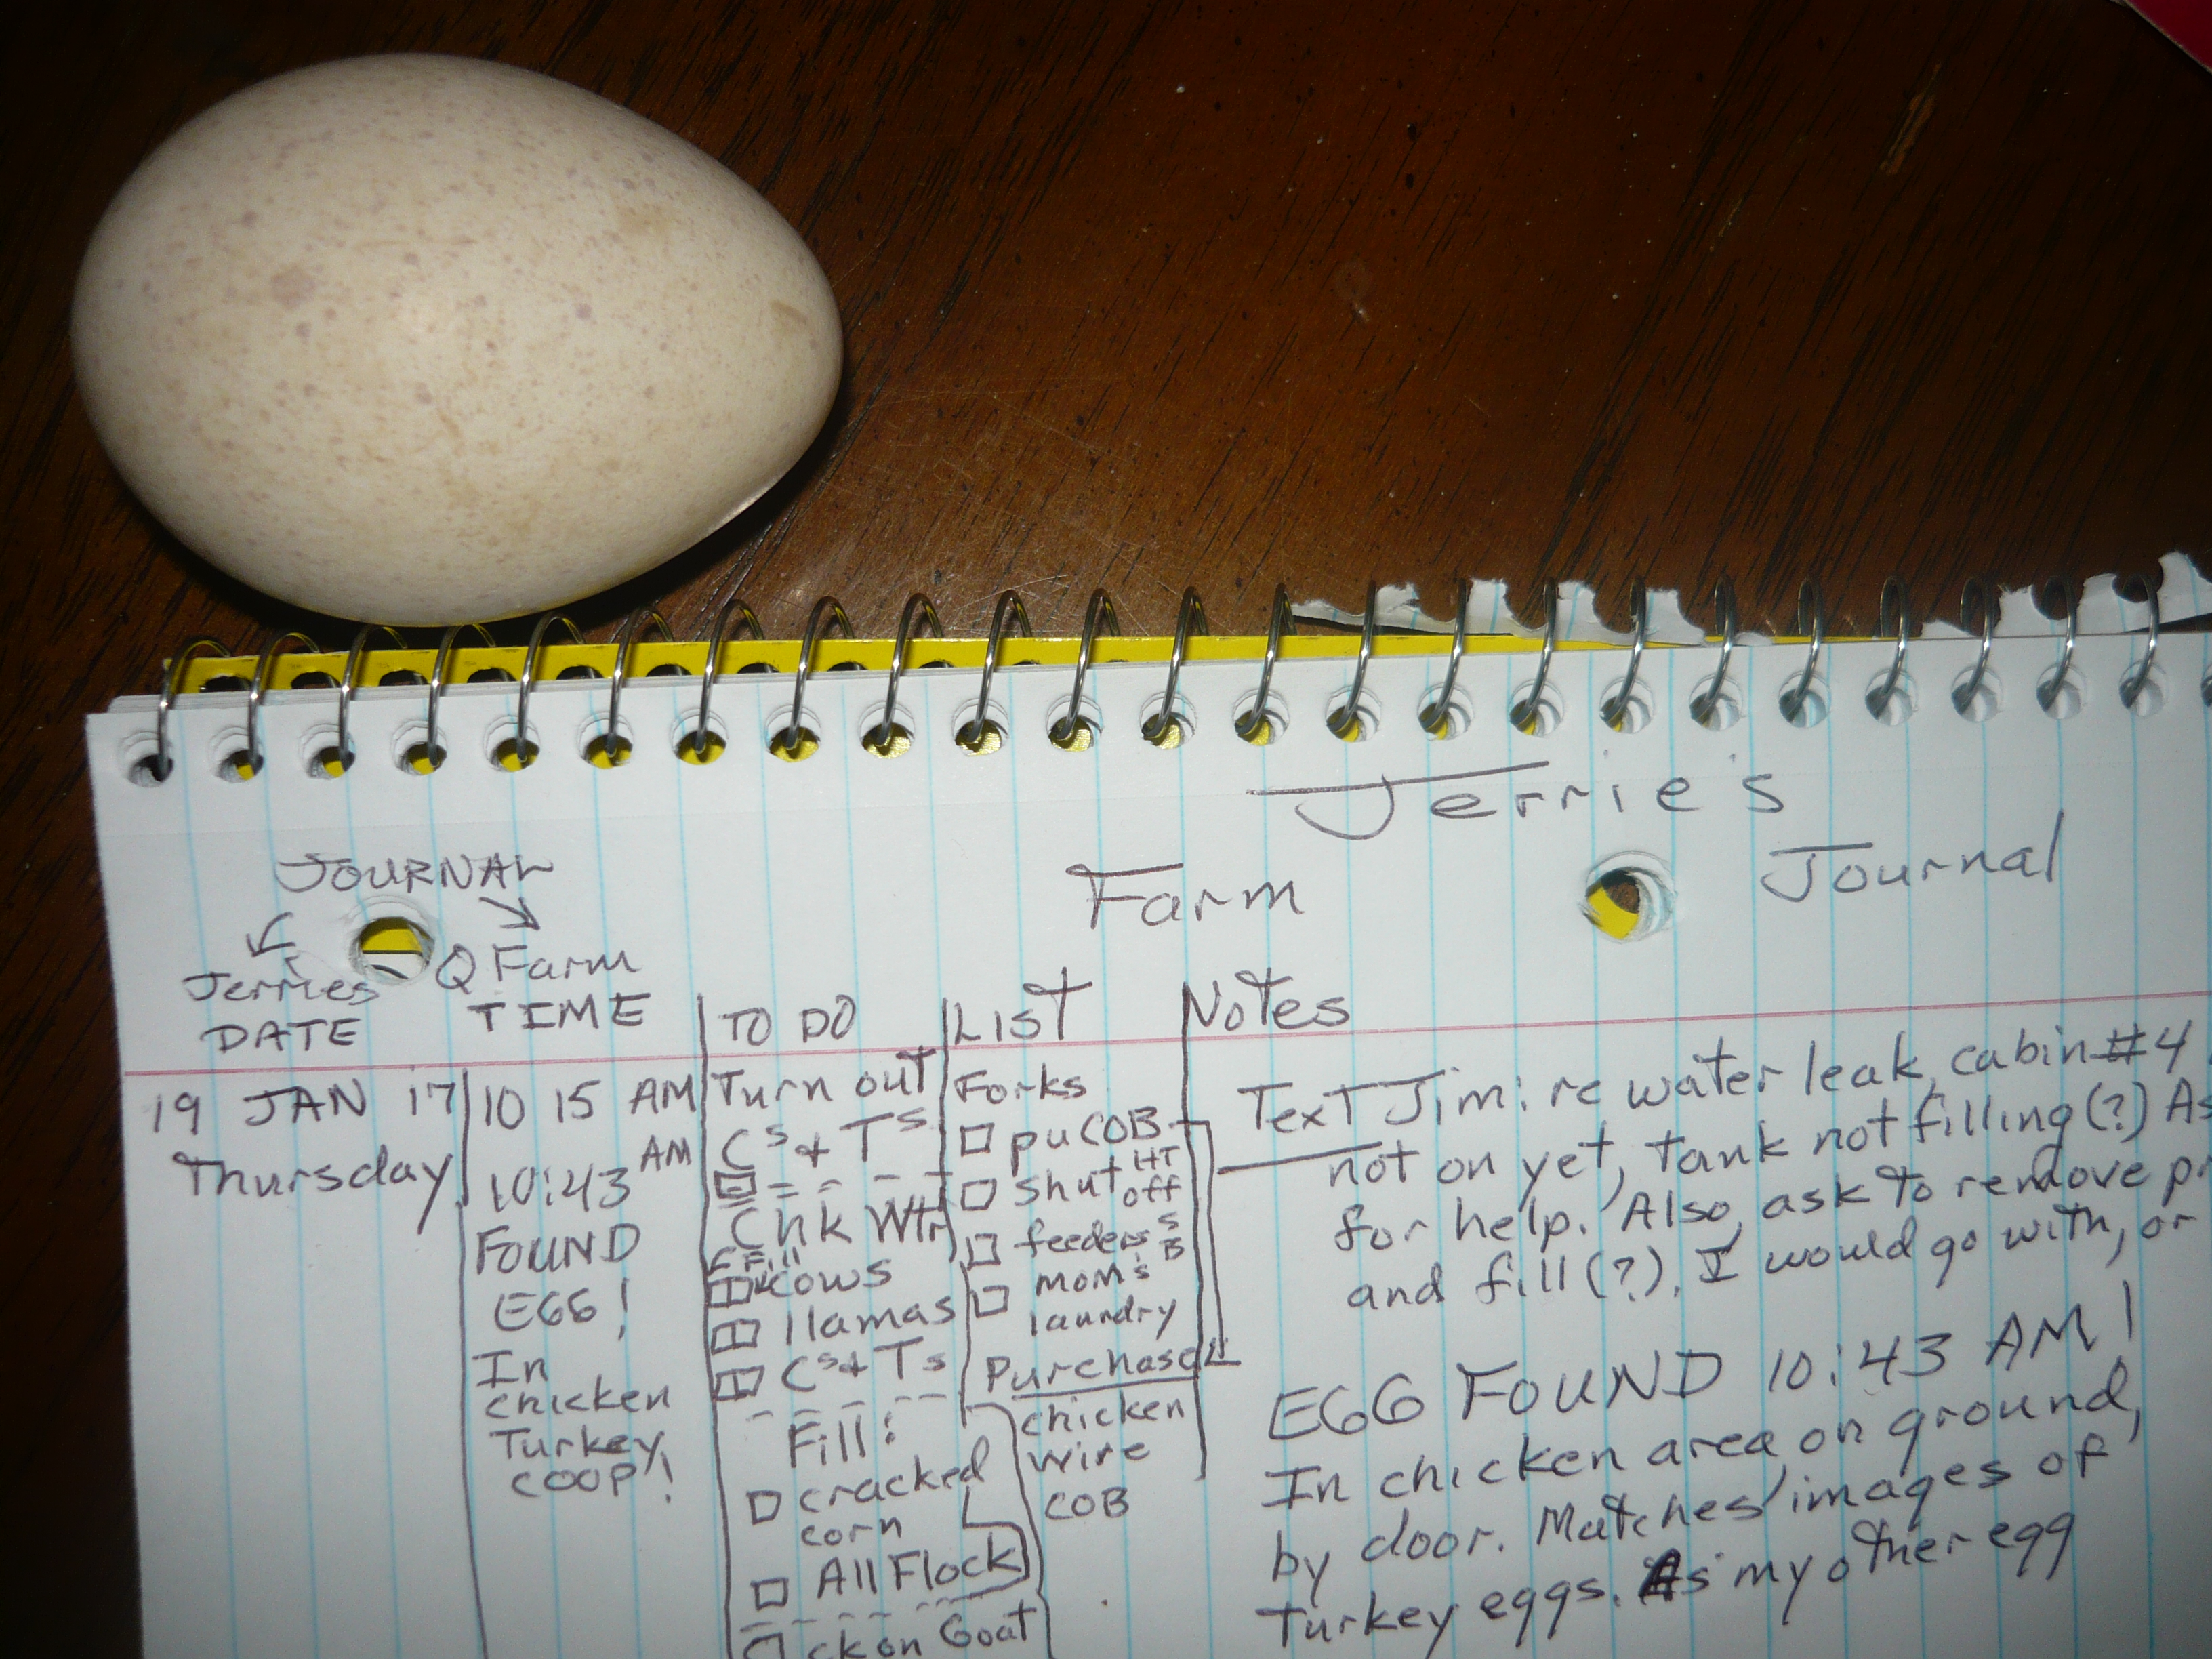 Jerrie's
Farm Journal
JOURNAL
Jerries Q Farm
DATE TIME
TO DO
List
Notes
19 JAN 17
Thursday
10 15 AM
10:43 AM
FOUND
EGG!
In
chicken
Turkey
COOP!
Turn out
Cs & Ts
Chk Wtr
Fill
cows
llamas
Cs & Ts
Fill:
cracked
corn
All Flock
ck on Goat
Forks
pu COB
shut HT off
feeders
mom's
laundry
Purchase
chicken
wire
COB
Text Jim: re water leak, cabin #4
not on yet, tank not filling (?) As
for help. Also, ask to remove
and fill (?). I would go with, or
EGG FOUND 10:43 AM!
In chicken area on ground,
by door. Matches images of
Turkey eggs. As my other egg